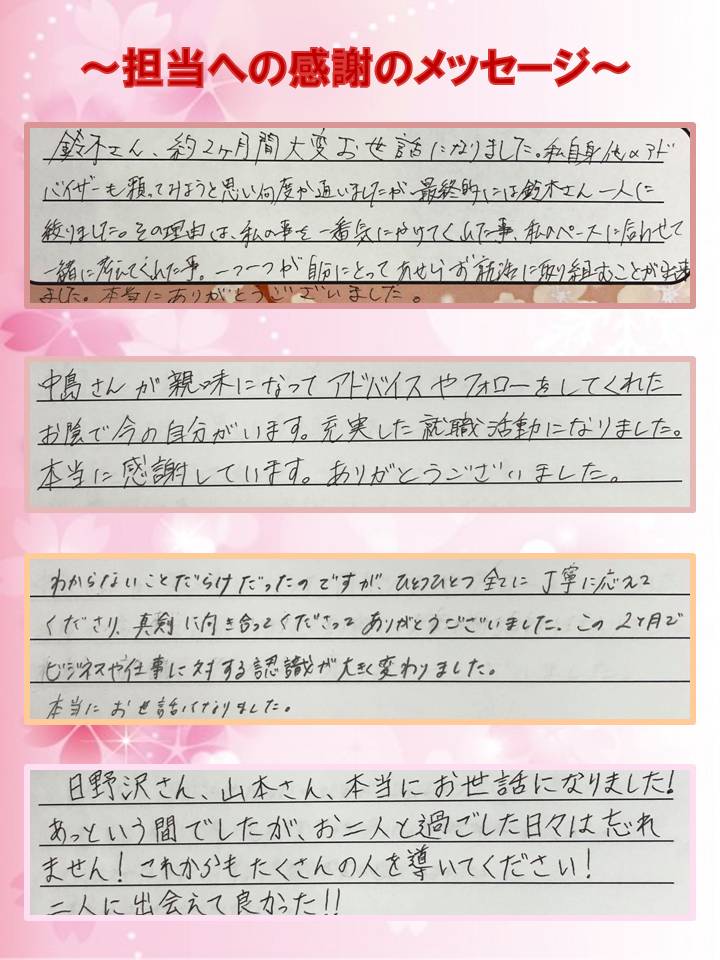 ～担当への感謝のメッセージ～
鈴木さん、約2ヶ月間大変お世話になりました。私自身他のアド
バイザーも頼ってみようと思い何度か通いましたが最終的には鈴木さん一人に
絞りました。その理由は、私の事を一番気にかけてくれた事、私のペースに合わせて
一緒に考えてくれた事。一つ一つが自分にとってあせらず就活に取り組むことが出来
ました。本当にありがとうございました。
中島さんが親味になってアドバイスやフォローをしてくれた
お陰で今の自分がいます。充実した就職活動になりました。
本当に感謝しています。ありがとうございました。
わからないことだらけだったのですが、ひとつひとつ全てに丁寧に応えて
くださり、真剣に向き合ってくださってありがとうございました。この2ヶ月で
ビジネスや仕事に対する認識が大きく変わりました。
本当にお世話になりました。
日野沢さん、山本さん、本当にお世話になりました!
あっという間でしたが、お二人と過ごした日々は忘れ
ません!これからもたくさんの人を導いてください!
二人に出会えて良かった!!